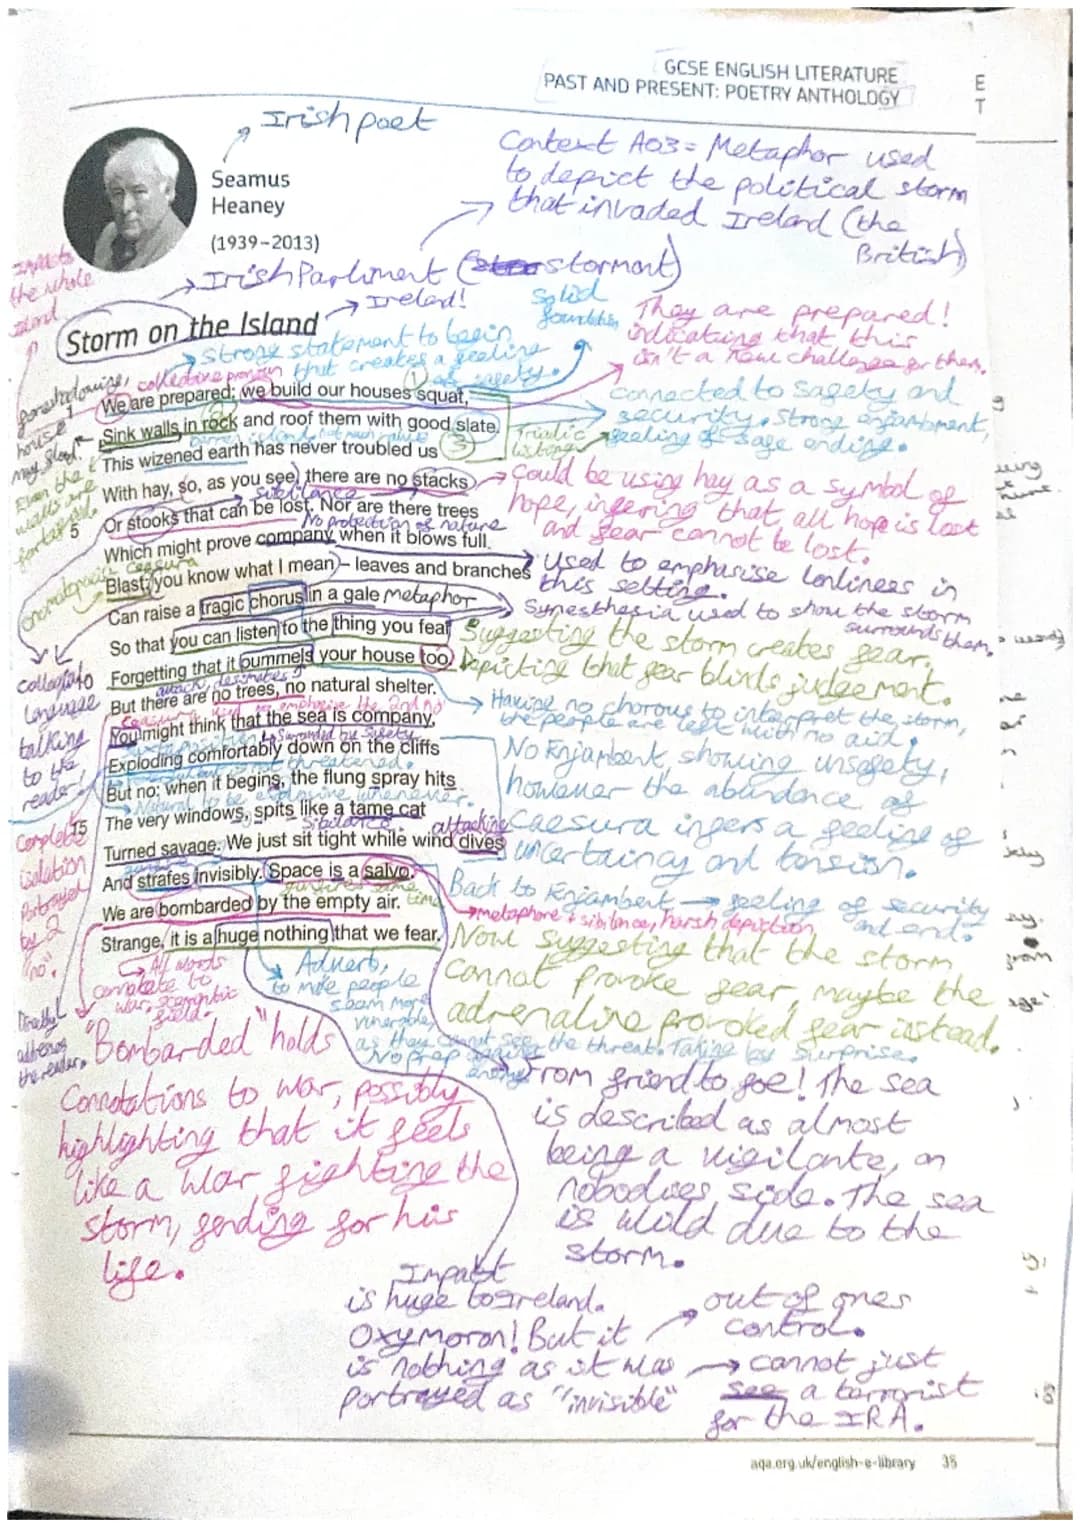 GCSE ENGLISH LITERATURE
PAST AND PRESENT: POETRY ANTHOLOGY
E
T
Irish poet
Seamus
Heaney
(1939–2013)
Context AO3 = Metaphor used
to depict the political storm
that invaded Ireland (the
British)
Irish Parliment (stormont)
Ireland!
Impacts
the whole
island
Storm on the Island
Solid
They are prepared!
indicating that this
isn't a new challenge for them.
Strong statement to begin
that creates a feeling
of safety.
collective pronoun
connected to safety and
security. Strong enjambment,
feeling of safe ending.
Triplic
listing
We are prepared: we build our houses squat,
Sink walls in rock and roof them with good slate.
This wizened earth has never troubled us
With hay, so, as you see, there are no stacks
sibilance
5 Or stooks that can be lost. Nor are there trees
No protection of nature
Which might prove company when it blows full
Blast: you know what I mean – leaves and branches
Can raise a tragic chorus in a gale
metaphor
So that you can listen to the thing you fear
Forgetting that it pummels your house too.
But there are no trees, no natural shelter.
You might think that the sea is company,
Exploding comfortably down on the cliffs
But no: when it begins, the flung spray hits
15 The very windows, spits like a tame cat
Sibilance
Turned savage. We just sit tight while wind dives
attacking
And strafes invisibly. Space is a salvo.
We are bombarded by the empty air.
Strange, it is a huge nothing that we fear.
Could be using hay as a symbol of
hope, ingering that all hope is lost
and fear cannot be lost.
Used to emphasise lonliness in
this setting.
Synesthesia used to show the storm
surrounds them.
Suggesting the storm creates fear.
Depicting that fear blinds judgement.
Having no chorous to interpret the storm,
the people are left with no aid.
No Enjambent, showing unsafety,
however the abundance of
caesura ingers a feeling of
uncertaincy and tension.
Back to Enjambent → feeling of security
and end.
metaphore + sibilance, harsh depiction
Now suggesting that the storm
cannot provoke fear, maybe the
adrenaline provoked fear instead.
onomatopoeia
caesura
language
talking
to the
reader!
Complete
isolation
Portrayed
by 2
"no".
Directly
address
the reader.
All words
connotate to
war, semantic
field.
Adverb,
to make people
seam more
as they cannot see the threat. Taking by surprise.
No prep
"Bombarded" holds
Connotations to war, possibly
highlighting that it feels
like a war fighting the
storm, fending for his
life.
From friend to foe! The sea
is described as almost
being a vigilante, on
nobodies side. The sea
is wild due to the
storm.
Impact
is huge to Ireland.
Oxymoron! But it
is nothing as it was
portrayed as "invisible"
out of ones
control.
cannot just
see a terrorist
for the IRA.
aqa.org.uk/english-e-library 35